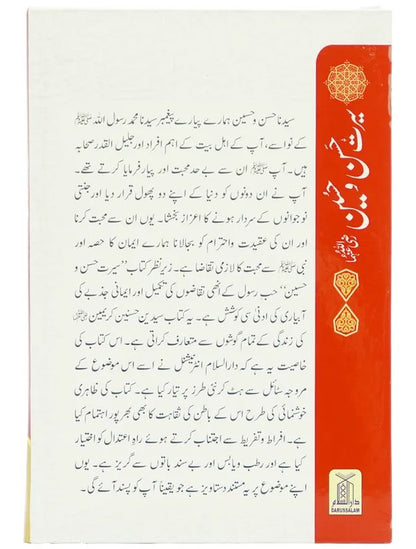 سیرت حسن و حسین رضی اللہ عنہما
سیدنا حسن و حسین ہمارے پیارے پیغمبر سیدنا محمد رسول اللہ ﷺ
کے نواسے، آپ کے اہل بیت کے اہم افراد اور جلیل القدر صحابہ
ہیں۔ آپ ﷺ ان سے بے حد محبت اور پیار فرمایا کرتے تھے۔
آپ نے ان دونوں کو دنیا کے اپنے دو پھول قرار دیا اور جنتی
نوجوانوں کے سردار ہونے کا اعزاز بخشا۔ یوں ان سے محبت کرنا
اور ان کی عقیدت واحترام کو بجالانا ہمارے ایمان کا حصہ اور
نبی ﷺ سے محبت کا لازمی تقاضا ہے۔ زیر نظر کتاب ”سیرت حسن و
حسین“ حب رسول کے انھی تقاضوں کی تکمیل اور ایمانی جذبے کی
آبیاری کی ادنیٰ سی کوشش ہے۔ یہ کتاب سیدین حسنین کریمین
کی زندگی کے تمام گوشوں سے متعارف کراتی ہے۔ اس کتاب کی
خاصیت یہ ہے کہ دارالسلام انٹرنیشنل نے اسے اس موضوع کے
مروجہ سٹائل سے ہٹ کر نئی طرز پر تیار کیا ہے۔ کتاب کی ظاہری
خوشنمائی کی طرح اس کے باطن کی ثقاہت کا بھی بھرپور اہتمام کیا
ہے۔ افراط و تفریط سے اجتناب کرتے ہوئے راہِ اعتدال کو اختیار
کیا ہے اور رطب و یابس اور بے سند باتوں سے گریز ہے۔ یوں
اپنے موضوع پر یہ مستند دستاویز ہے جو یقیناً آپ کو پسند آئے گی۔
دارالسلام
DARUSSALAM